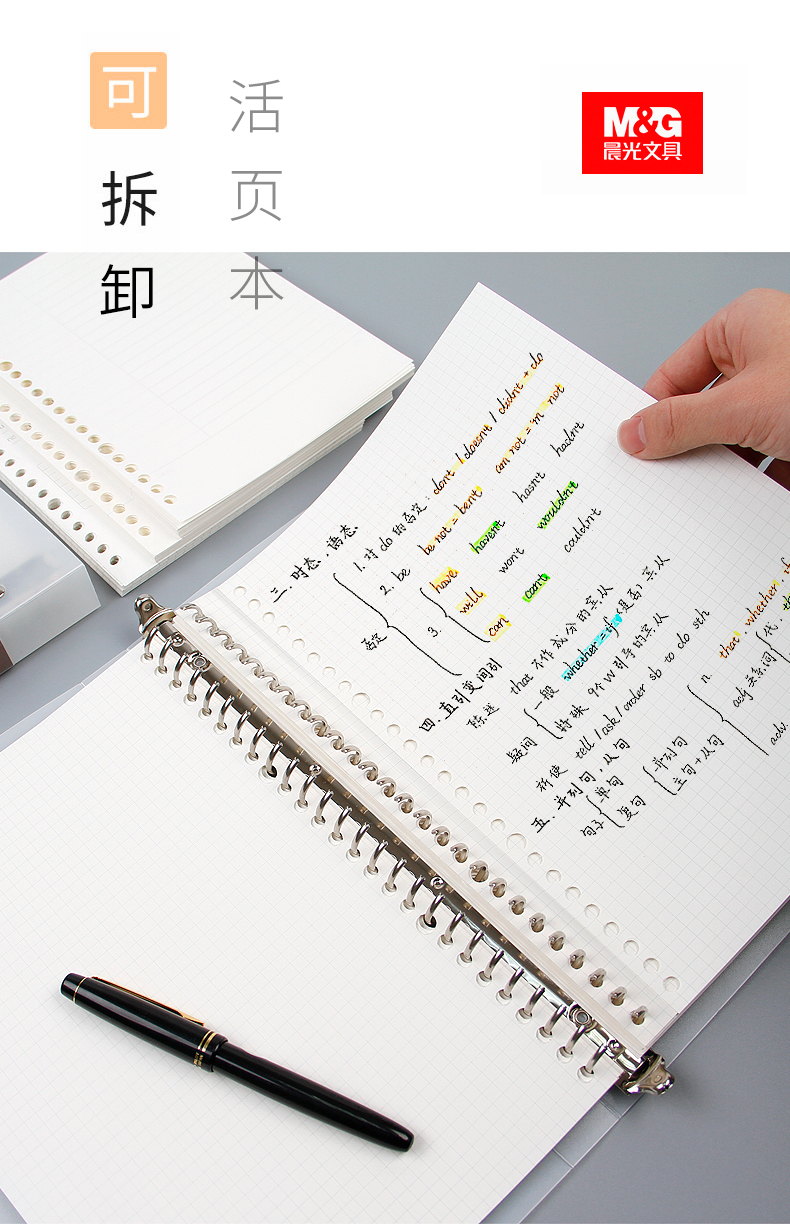 可拆卸
活页本
M&G
晨光文具
三.时态.语态.
否定
1.对do的否定：don't / doesn't / didn't + do
2. be be not = ben't am not = 'm not
3. have haven't hasn't hadn't
will won't wouldn't
can can't couldn't
四.直引变间引
陈述 that 不作成分的宾从
疑问 一般 whether = if (是否) 宾从
特殊 9个W引导的宾从
祈使 tell / ask / order sb to do sth
五.并列句.从句
句子 单句
复句 并列句
主句+从句
n. that.whether.if
adj 关系词 代.
adv.